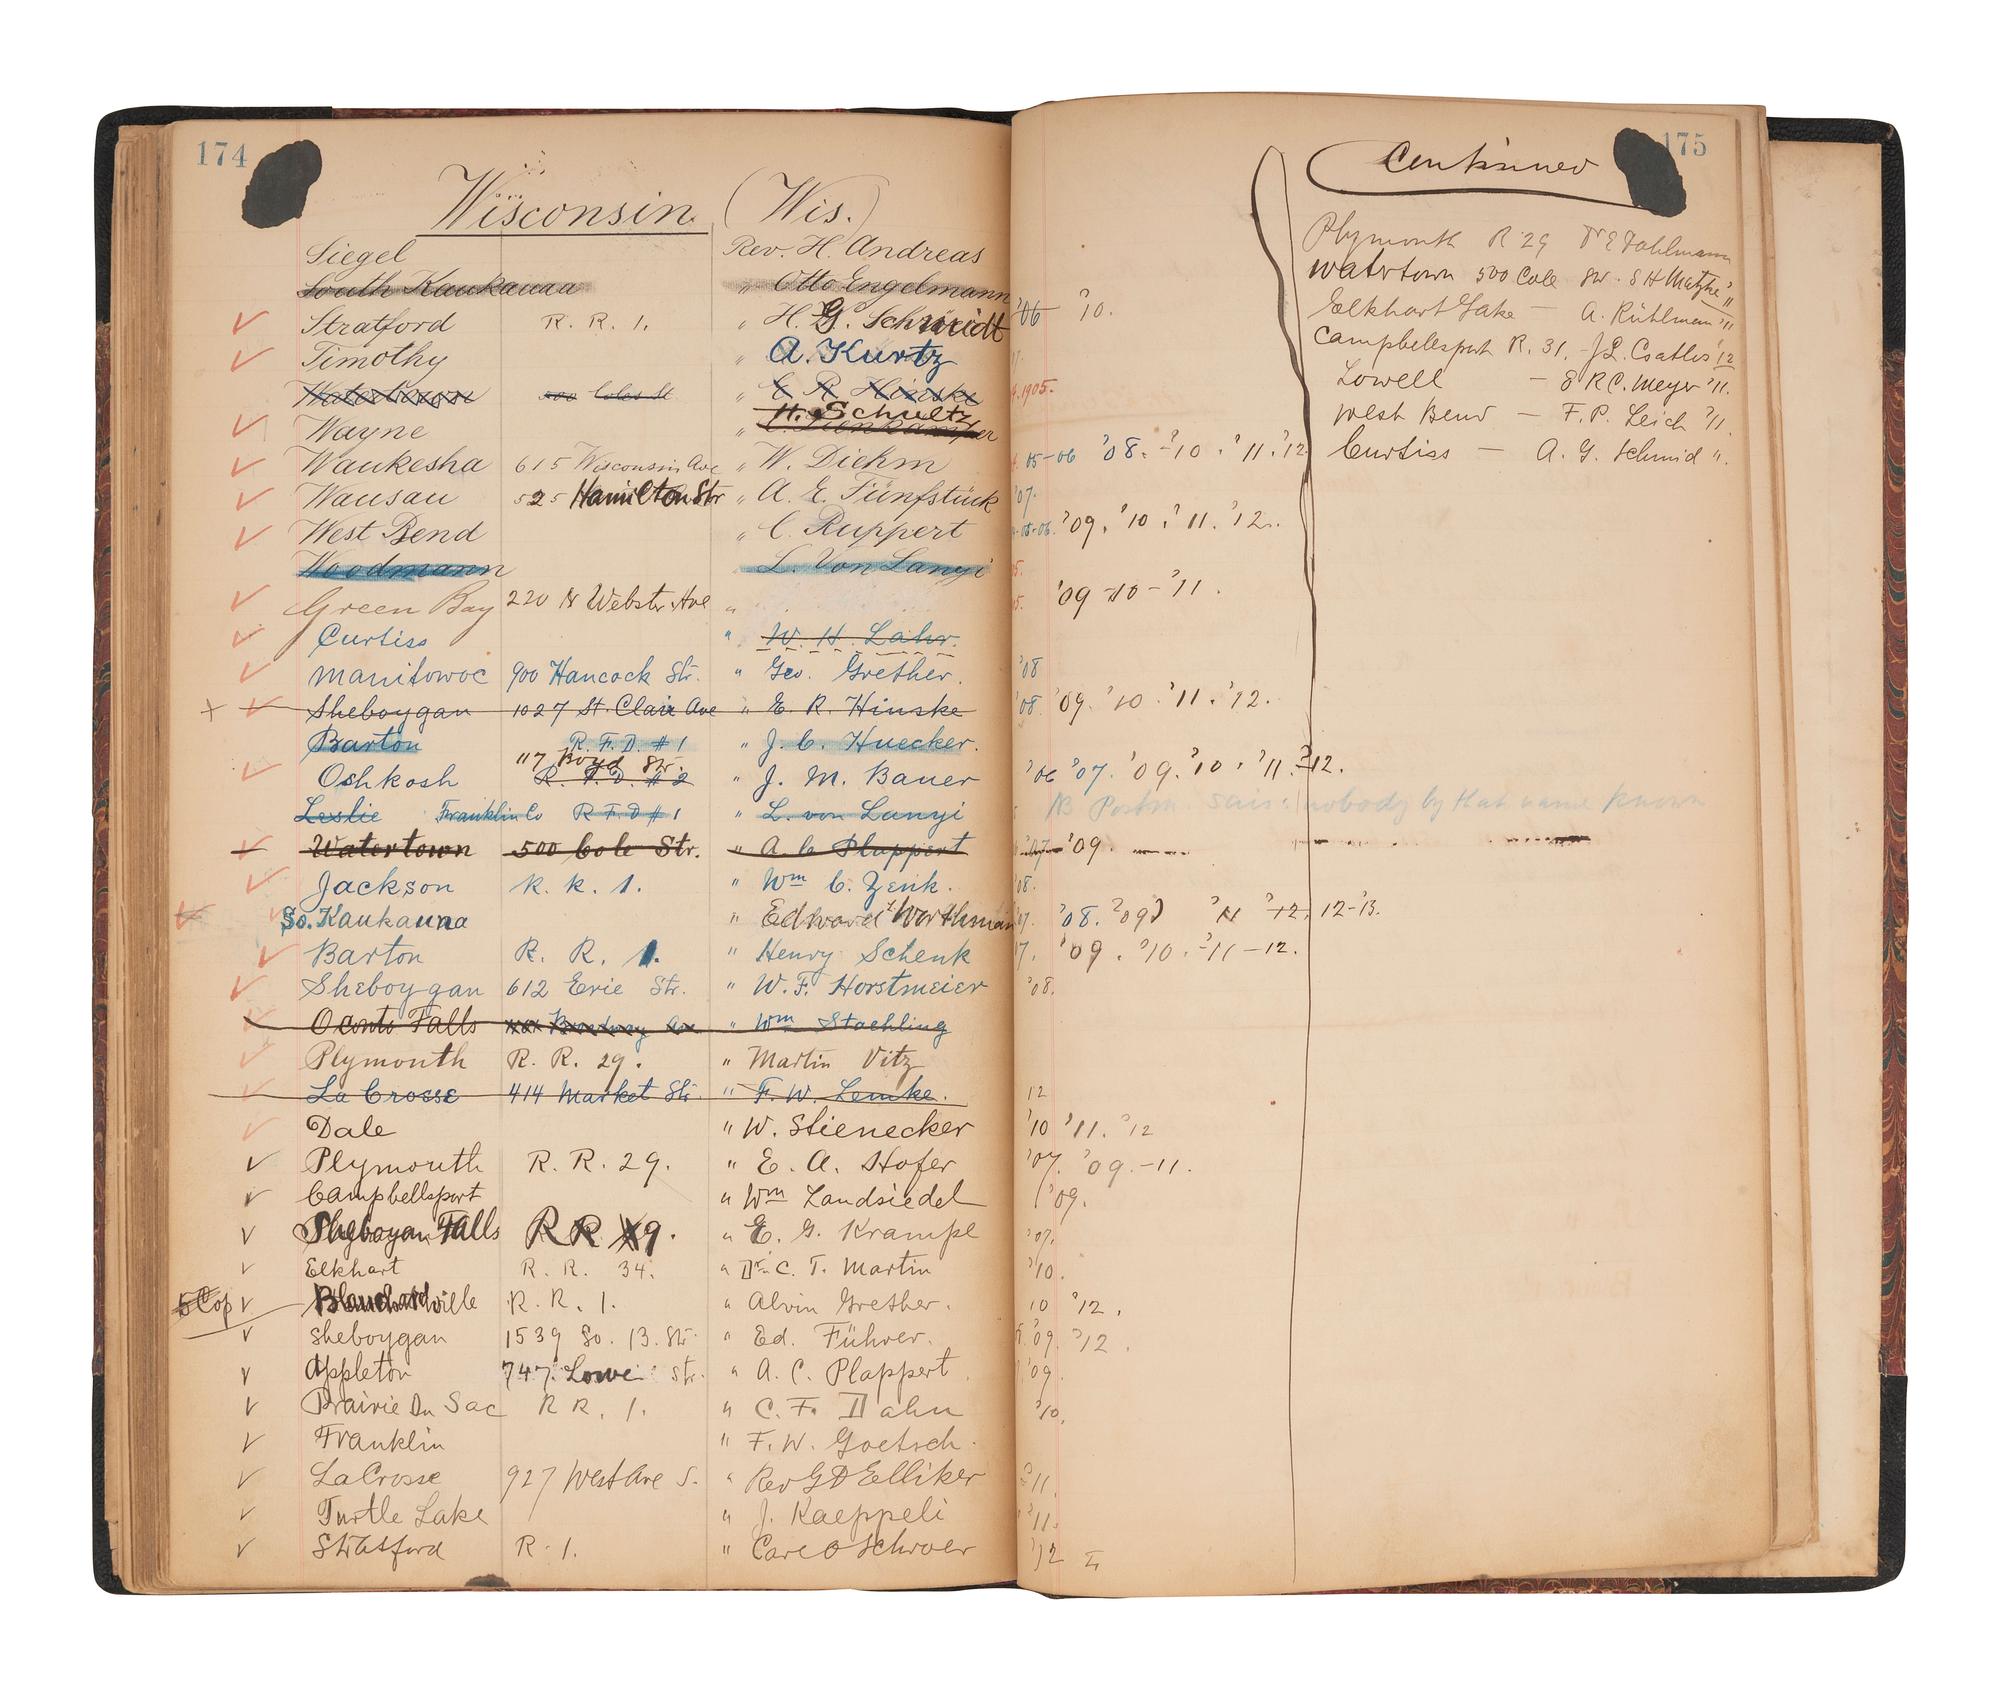 174
Wisconsin (Wis.)
Siegel Rev. H. Andreas
South Kaukauna " Otto Engelmann
Stratford R. R. 1. " H. G. Schmidt '06 '10.
Timothy " A. Kurtz
Watertown 500 Coles St " E R Hinske 1905.
Wayne " H. Schultz
Waukesha 615 Wisconsin Ave " W. Diehm 05-06 '08. '10. '11. '12
Wausau 525 Hamilton Str " A. E. Fünfstück '07.
West Bend " C. Ruppert 05-06. '09. '10. '11. '12.
Woodmann " L. Von Lanyi
Green Bay 220 N Webster Ave " '09-10-'11.
Curtiss " W. H. Lahr.
Manitowoc 900 Hancock Str. " Geo. Grether. '08
Sheboygan 1027 St. Clair Ave " E. R. Hinske '08. '09. '10. '11. '12.
Barton R. F. D. #1 " J. C. Huecker.
117 Boyd Str.
Oshkosh R. F. D. #2 " J. M. Bauer '06 '07. '09. '10. '11. '12.
Leslie Franklin Co R F D #1 " L. von Lanyi NB Postm. says: nobody by that name known
Watertown 500 Cole Str. " A. C. Plappert '07 '09.
Jackson R. R. 1. " Wm C. Zenk. '08.
So. Kaukauna " Edward Worthman '07. '08. '09 '11 '12, 12-'13.
Barton R. R. 1. " Henry Schenk '09. '10. '11-12.
Sheboygan 612 Erie Str. " W. F. Horstmeier '08.
Oconto Falls Broadway Ave " Wm Staehling
Plymouth R. R. 29. " Martin Vitz
La Crosse 414 Market Str. " F. W. Lemke. 12
Dale " W. Stienecker '10 '11. '12
Plymouth R. R. 29. " E. A. Hofer '07. '09.-11.
Campbellsport " Wm Landsiedel '09.
Sheboygan Falls R R 9. " E. G. Krampe '07.
Elkhart R. R. 34. " Dr. C. T. Martin '10.
5 Cop Blanchardville R. R. 1. " Alvin Grether. 10 '12.
Sheboygan 1539 So. 13. Str. " Ed. Führer. '09. '12.
Appleton 747. Lowe Str. " A. C. Plappert. '09.
Prairie Du Sac R R. 1. " C. F. Dahn '10.
Franklin " F. W. Goetsch.
La Crosse 927 West Ave S. " Rev G D Elliker '11.
Turtle Lake " J. Kaeppeli '11.
Stratford R. 1. " Carl O Schroer '12
175
Continued
Plymouth R 29 Dahlmann
Watertown 500 Cole Str. S H Matzke "
Elkhart Lake — A. Rühlman '11
Campbellsport R. 31. J L. Csatlos '12
Lowell — E R C. Meyer '11.
West Bend — F. P. Leich '11
Curtiss — A. G. Schmid ".